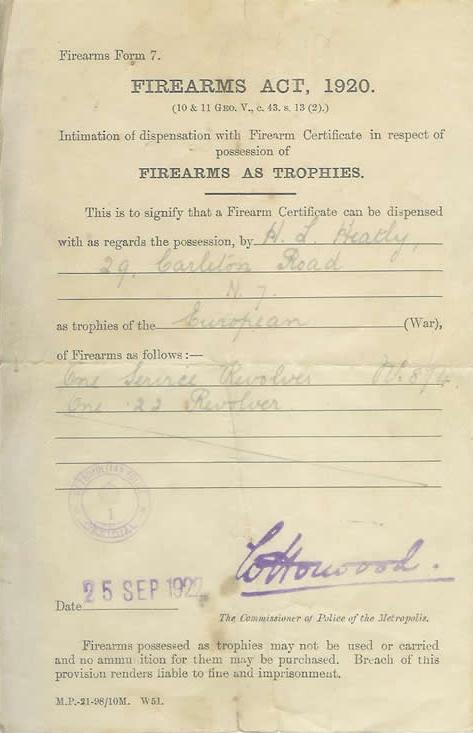 Firearms Form 7.
FIREARMS ACT, 1920.
(10 & 11 GEO. V., c. 43. s. 13 (2).)
Intimation of dispensation with Firearm Certificate in respect of
possession of
FIREARMS AS TROPHIES.
This is to signify that a Firearm Certificate can be dispensed
with as regards the possession, by H. L. Heatly,
29, Carleton Road
N. 7.
as trophies of the European (War),
of Firearms as follows:—
One Service Revolver
One .22 Revolver.
METROPOLITAN POLICE
OFFICIAL
25 SEP 1922
Date
The Commissioner of Police of the Metropolis.
Firearms possessed as trophies may not be used or carried
and no ammunition for them may be purchased. Breach of this
provision renders liable to fine and imprisonment.
M.P.-21-98/10M. W51.